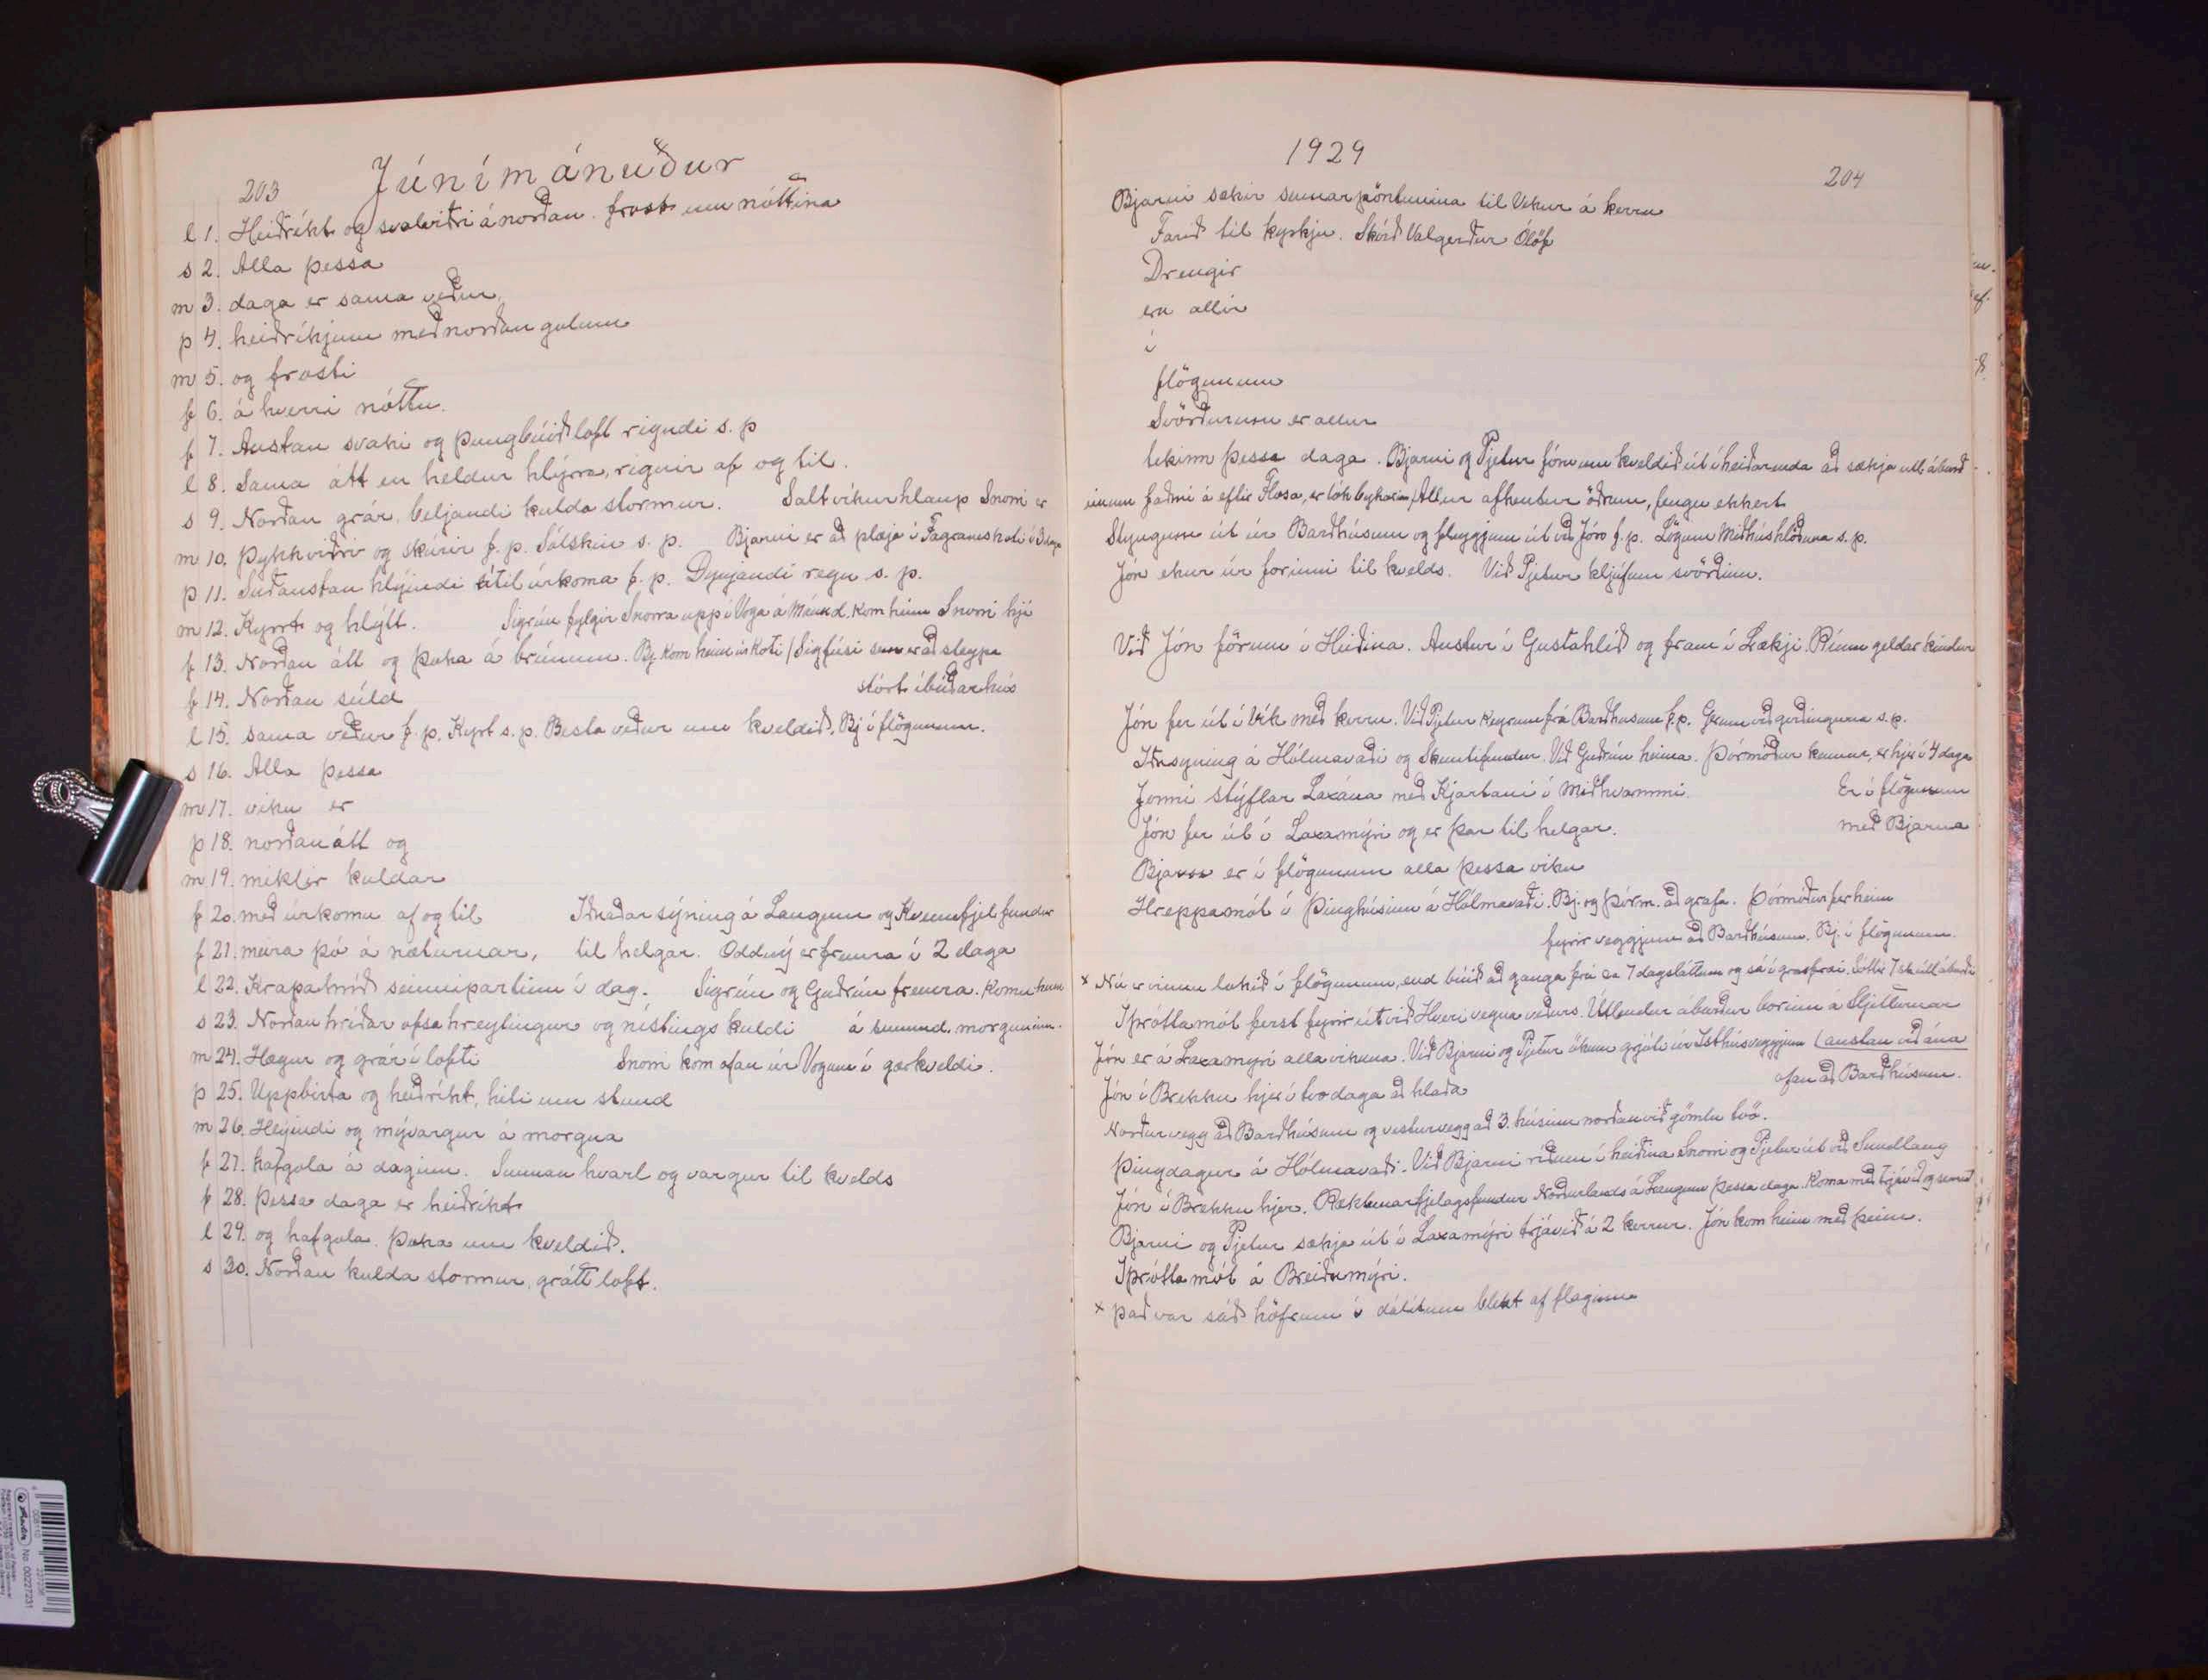 203
Júnímánuður
l 1. Heiðríkt og svalviðri á norðan. frost um nóttina
s 2. Alla þessa
m 3. daga er sama veður,
þ 4. heiðríkjum með norðan golum
m 5. og frosti
f 6. á hverri nóttu.
f 7. Austan svaki og þungbúið loft rigndi s. p
l 8. Sama átt en heldur hlýrra, rignir af og til.
s 9. Norðan grár, beljandi kulda stormur. Saltvíkurhlaup Snorri er
m 10. Þykkviðri og skúrir f. p. Sólskin s. p. Bjarni er að plæja í Fagraneskoti í 3 daga
þ 11. Suðaustan hlýindi úrkoma f. p. Dynjandi regn s. p.
m 12. Kyrrt og hlýtt. Sigrún fylgir Snorra upp í Voga á Mánud. kom heim Snorri hjá
f 13. Norðan átt og þoka á brúnum. Bj. kom heim úr Koti / Sigfúsi sem er að steypa
stórt íbúðarhús
f 14. Norðan súld
l 15. sama veður f. p. Kyrt s. p. Besta veður um kveldið. Bj í flögunum.
s 16. Alla þessa
m 17. viku er
þ 18. norðanátt og
m 19. miklir kuldar
f 20. með úrkomu af og til Iðnaðarsýning á Laugum og Kvennfjel fundur
f 21. meira þó á næturnar, til helgar. Oddný er fremra í 2 daga
l 22. Krapahríð seinnipartinn í dag. Sigrún og Guðrún fremra. Komu heim
s 23. Norðan hríðar ofsa hreytingur og nístings kuldi á sunnud. morguninn.
m 24. Hægur og grár í lofti Snorri kom ofan úr Vogum í gærkveldi.
þ 25. Uppbirta og heiðríkt, hiti um stund
m 26. Hlýindi og mývargur á morgna
f 27. hafgola á daginn. Sunnan hvarl og vargur til kvelds
f 28. Þessa daga er heiðríkt
l 29. og hafgola. Þoka um kveldið.
s 30. Norðan kulda stormur, grátt loft.
1929
204
Bjarni sækir sumarpöntunina til Vikur á kerru
Farið til kyrkju. Skírð Valgerður Ólöf
Drengir
eru allir
í
flögunum
Svörðurinn er allur
tekinn þessa daga. Bjarni og Pjetur fóru um kveldið út í heiðarenda að sækja útl áburð
Allur afhentur öðrum, fengu ekkert
Stungum út úr Barðhúsum og fleygjum út við Jóns f. p. Lögum Miðhúshlöðuna s. p.
Jón ekur úr forinni til kvelds. Við Pjetur kljúfum svörðinn.
Við Jón förum í Heiðina. Austur í Gustahlíð og fram í Lækji. Rýum geldar kindur
Jón fer út í Vík með kerru. Við Pjetur keyrum frá Barðhúsum f.p. Gerum við girðinguna s.p.
Iðnsyning á Hólmavaði og Skemtifundur. Við Guðrún heima. Þórmóður kemur, er hjer í 4 daga
Jonni stýflar Laxána með Kjartani í Miðhvammi. Er í flögunum
Jón fer út í Laxamýri og er þar til helgar. með Bjarna
Bjarni er í flögunum alla þessa viku
Hreppamót í Þinghúsinu á Hólmavaði. Bj. og Þórm. að grafa. Þórmóður fer heim
fyrir veggjum að Barðhúsum. Bj. í flögunum.
x Nú er vinnu lokið í flögunum, end búið að ganga frá ca 7 dagsláttum og sá í grasfræi.
Íþróttamót ferst fyrir út við Hveri vegna veðurs. Útlendur áburður borinn á Sljetturnar
Jón er á Laxamyri alla vikuna. Við Bjarni og Pjetur ökum grjóti úr Isthúsveggjum (austan við ána
ofan að Barðhúsum.
Jón í Brekku hjer í tvo daga að hlaða
Norðurvegg að Barðhúsum og vesturvegg að 3. húsinu norðan við gömlu tvö.
Þingdagur á Hólmavaði. Við Bjarni riðum í heiðina Snorri og Pjetur út við Sundlaug
Jón í Brekku hjer. Ræktunarfjelagsfundur Norðurlands á Laugum þessa daga. Koma með trjávið og sement
Bjarni og Pjetur sækja út í Laxamýri trjávið á 2 kerrur. Jón kom heim með þeim.
Íþróttamót á Breiðumýri.
x það var sáð höfrum í dálítinn blett af flaginu